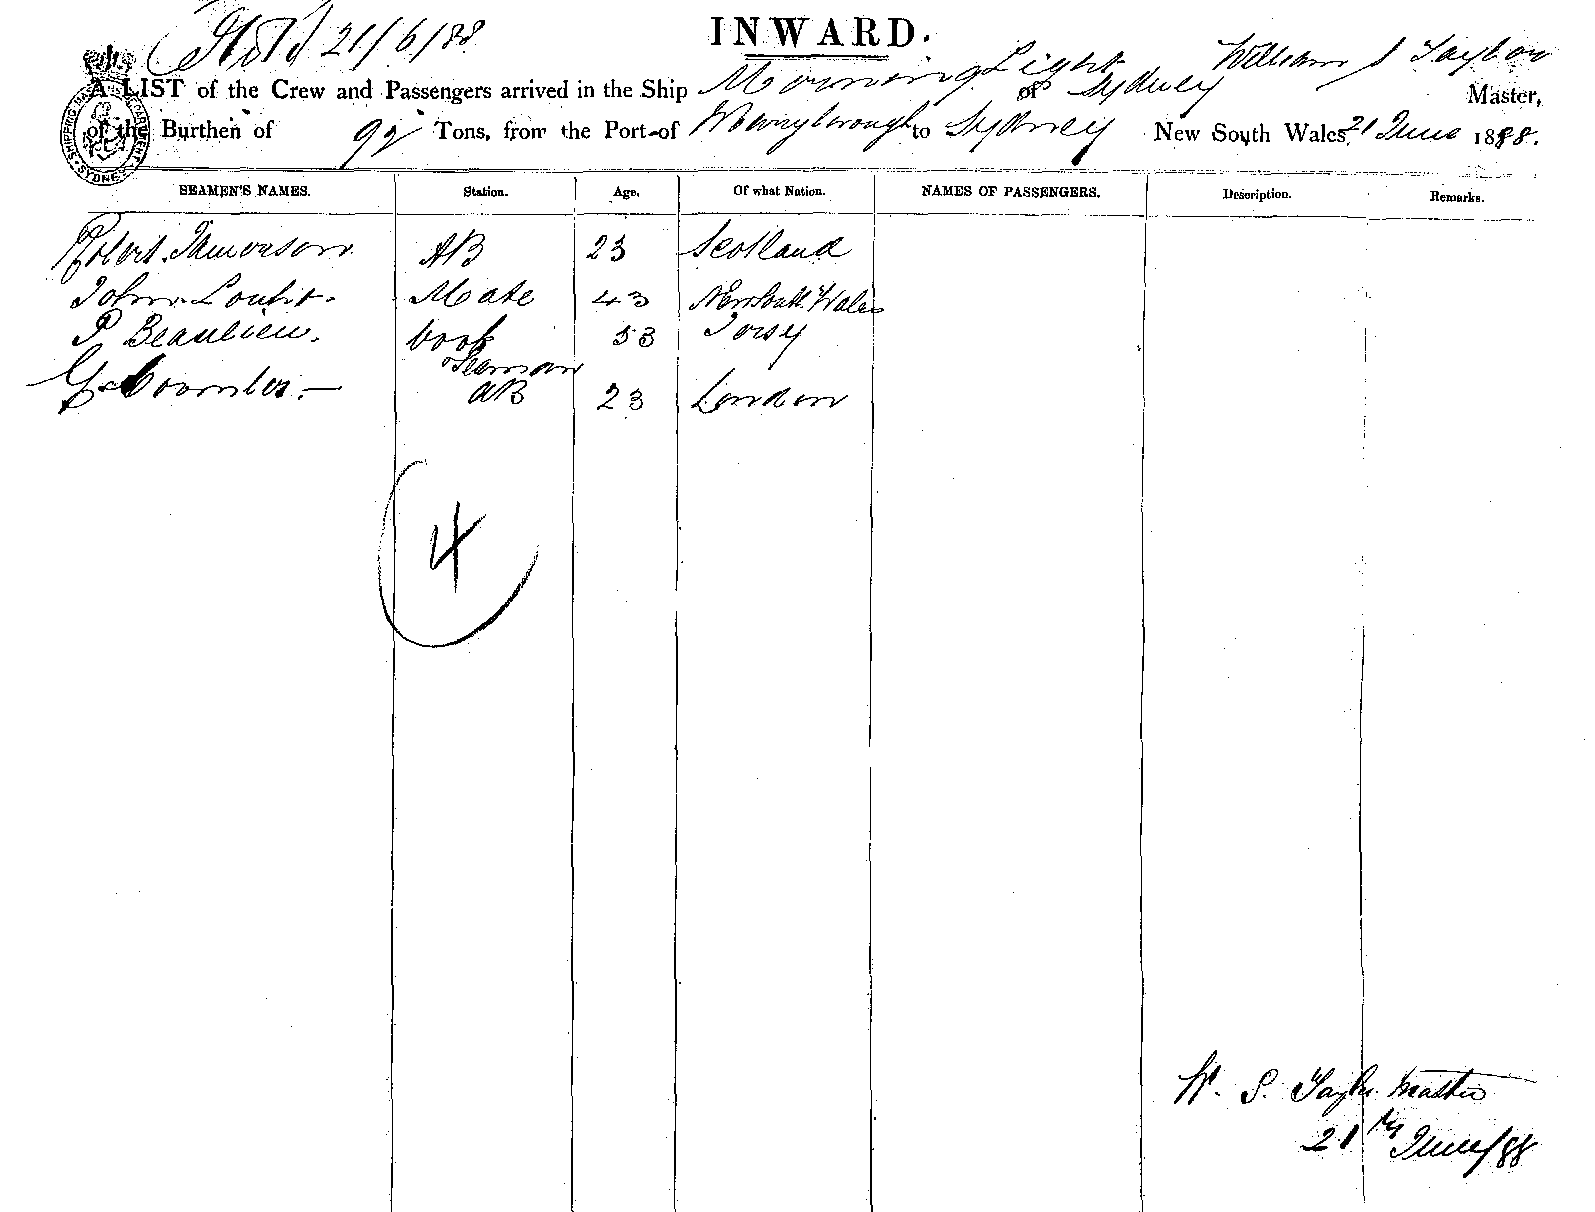 21/6/88
INWARD.
A LIST of the Crew and Passengers arrived in the Ship Morning Light of Sydney William S Taylor Master,
of the Burthen of Tons, from the Port of Maryborough to Sydney New South Wales, 21 June 1888.
SEAMEN'S NAMES. Station. Age. Of what Nation. NAMES OF PASSENGERS. Description. Remarks.
Robert AB 23 Scotland
John Loutit. Mate 43 New South Wales
P Beaulieu. Cook 53 Jersey
Seaman
G Coombes. AB 23 London
4
W. S. Taylor Master
21 June/88